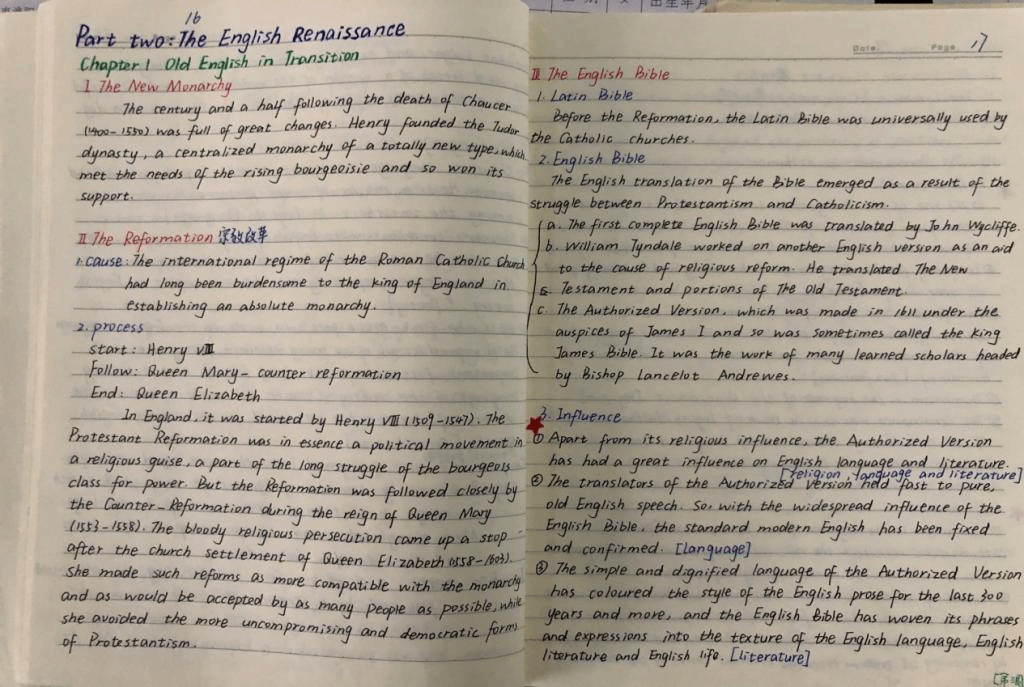 出生年月
16
Part two: The English Renaissance
Chapter 1 Old English in Transition
I. The New Monarchy
The century and a half following the death of Chaucer
(1400-1550) was full of great changes. Henry founded the Tudor
dynasty, a centralized monarchy of a totally new type, which
met the needs of the rising bourgeoisie and so won its
support.
II The Reformation 宗教改革
1. cause: The international regime of the Roman Catholic Church
had long been burdensome to the king of England in
establishing an absolute monarchy.
2. process
Start: Henry VIII
Follow: Queen Mary - counter reformation
End: Queen Elizabeth
In England, it was started by Henry VIII (1509-1547). The
Protestant Reformation was in essence a political movement in
a religious guise, a part of the long struggle of the bourgeois
class for power. But the Reformation was followed closely by
the Counter-Reformation during the reign of Queen Mary
(1553-1558). The bloody religious persecution came up a stop
after the church settlement of Queen Elizabeth (1558-1603).
She made such reforms as more compatible with the monarchy
and as would be accepted by as many people as possible, while
she avoided the more uncompromising and democratic forms
of Protestantism.
Date. Page. 17
III The English Bible
1. Latin Bible
Before the Reformation, the Latin Bible was universally used by
the Catholic churches.
2. English Bible
The English translation of the Bible emerged as a result of the
struggle between Protestantism and Catholicism.
a. The first complete English Bible was translated by John Wycliffe.
b. William Tyndale worked on another English version as an aid
to the cause of religious reform. He translated The New
Testament and portions of The Old Testament.
c. The Authorized Version, which was made in 1611 under the
auspices of James I and so was sometimes called the king
James Bible. It was the work of many learned scholars headed
by Bishop Lancelot Andrewes.
3. Influence
① Apart from its religious influence, the Authorized Version
has had a great influence on English language and literature.
[religion, language and literature]
② The translators of the Authorized Version held fast to pure,
old English speech. So, with the widespread influence of the
English Bible, the standard modern English has been fixed
and confirmed. [language]
③ The simple and dignified language of the Authorized Version
has coloured the style of the English prose for the last 300
years and more, and the English Bible has woven its phrases
and expressions into the texture of the English language, English
literature and English life. [literature]